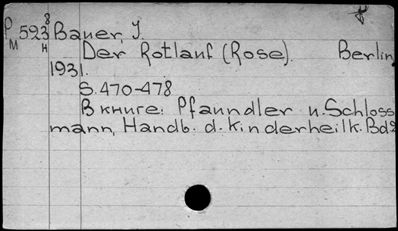 P 593 8 Bauer, J.
M H Der Rotlauf (Rose). Berlin
1931.
S. 470-478
В книге: Pfaundler u. Schloss
mann, Handb. d. Kinderheilk. Bd